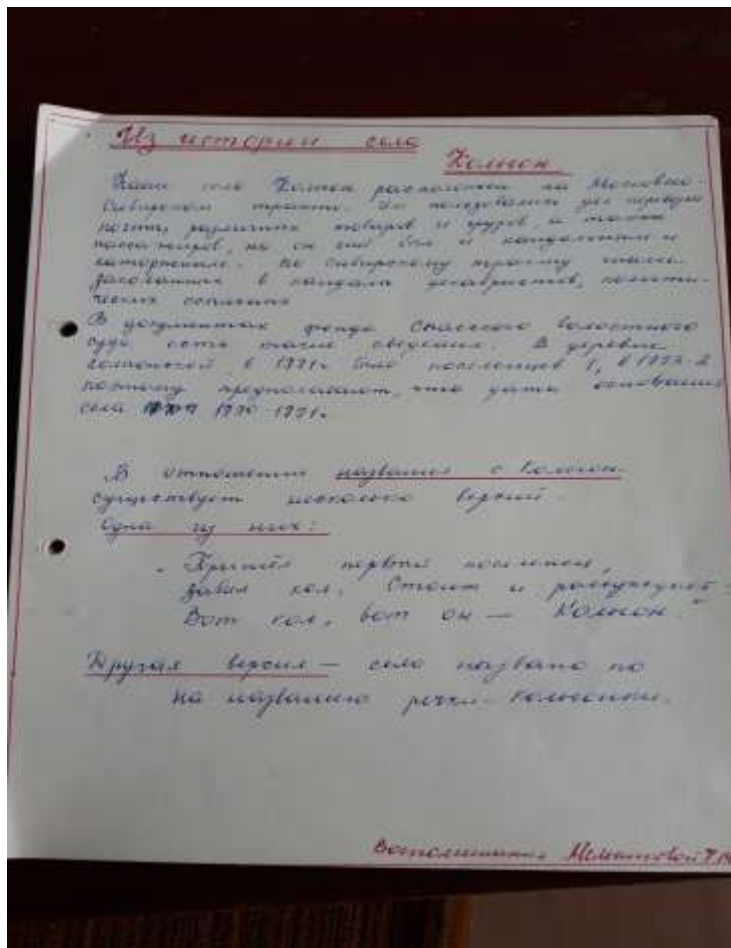 Из истории села
Колион.
Наше село Колион расположен на Московско-
Сибирском тракте. Им пользовались для перевозки
почты, различных товаров и грузов и также
пассажиров, но он ещё был и кандальным и
каторжным. По Сибирскому тракту шли
закованных в кандалы декабристов, полити-
ческих ссыльных
В документах фонда Спасского волостного
суда есть такие сведения. В деревне
в 1791г было поселенцев 1, в 1792 2
поэтому предполагают, что дата основания
села 1790-1791г
В отношении названия с Колион
существует несколько версий.
Одна из них:
Пришёл первый поселенец,
забил кол. Стоит и рассуждает -
Вот кол, вот он — Колион."
Другая версия — село названо по
на названию речки
Воспоминания